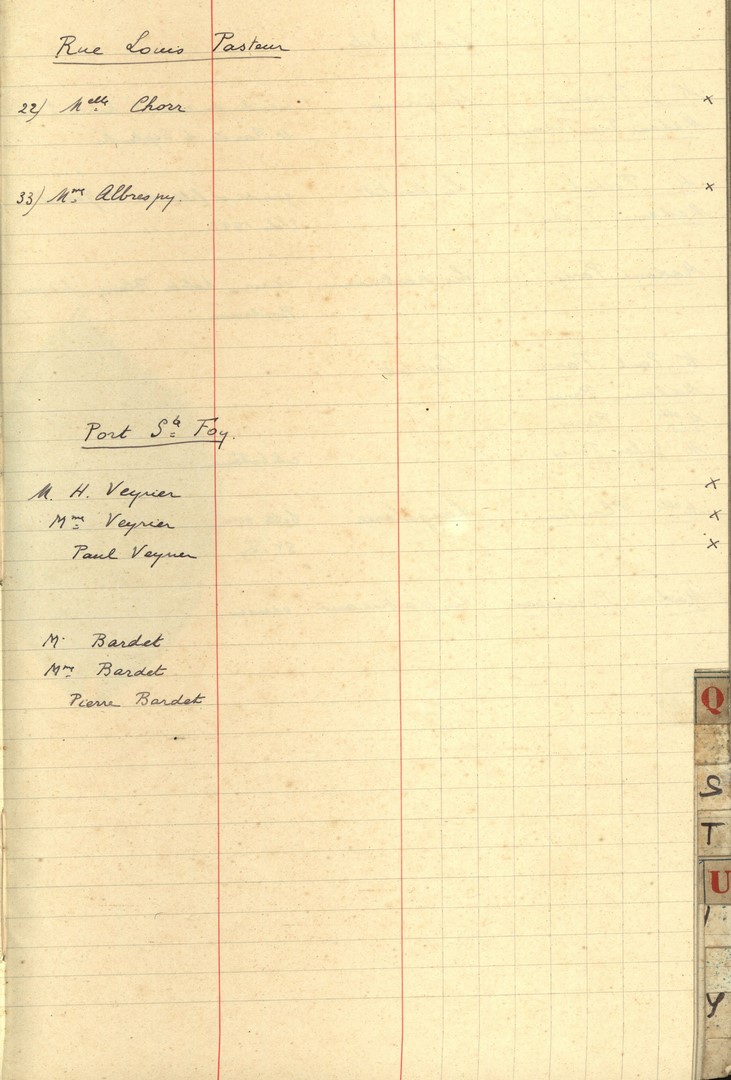 Rue Louis Pasteur
22) Melle Chorr x
33) Mme Albrespy. x
Port Ste Foy.
M. H. Veyrier x
Mme Veyrier x
Paul Veyrier x
M. Bardet
Mme Bardet
Pierre Bardet
Q
S
T
U
Y